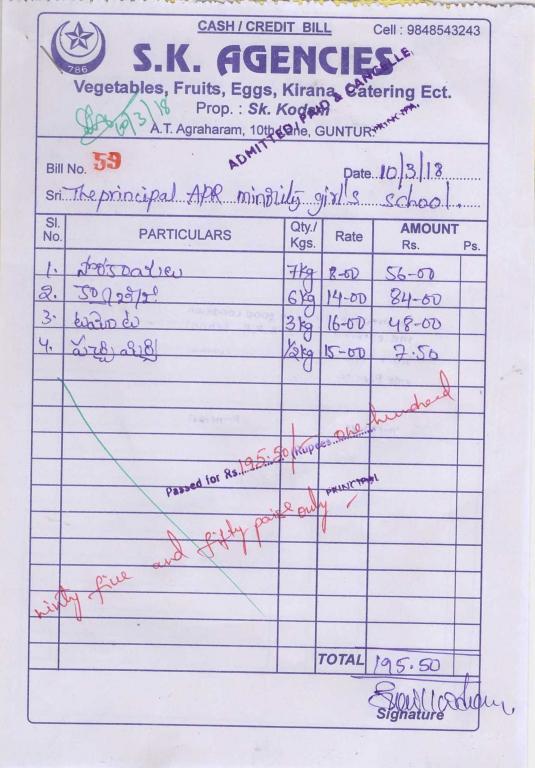 CASH / CREDIT BILL
Cell : 9848543243
786
S.K. AGENCIES
Vegetables, Fruits, Eggs, Kirana, Catering Ect.
Prop. : Sk. Kodam
A.T. Agraharam, 10th Line, GUNTUR
10/3/18
ADMITTED, PAID & CANCELLE
PRINCIPAL
Bill No. 59
Date 10/3/18
Sri The principal APR minority girl's school.
Sl. No. PARTICULARS Qty./ Kgs. Rate AMOUNT Rs. Ps.
1. 7kg 8-00 56-00
2. 6kg 14-00 84-00
3. టమాటా 3kg 16-00 48-00
4. పచ్చి మిర్చి 1/2kg 15-00 7.50
Passed for Rs. 195.50/- (Rupees one hundred
ninty five and fifty paise only -
PRINCIPAL
TOTAL 195.50
Signature